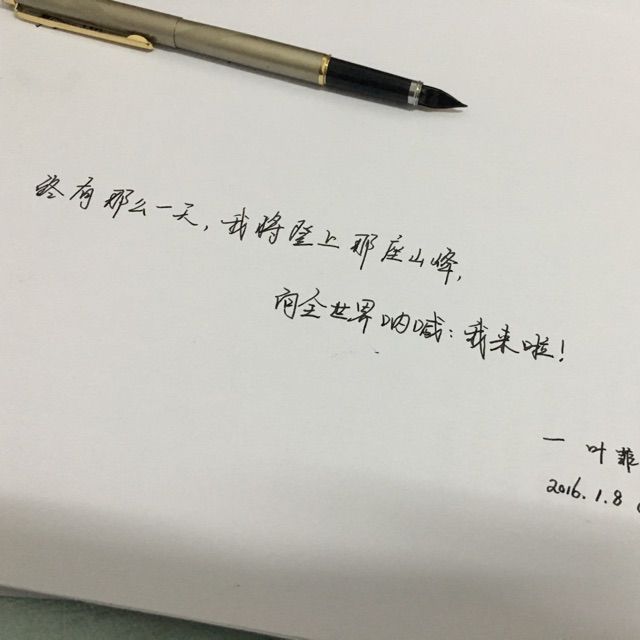 终有那么一天，我将登上那座山峰，
向全世界呐喊：我来啦！
一 叶菲
2016.1.8